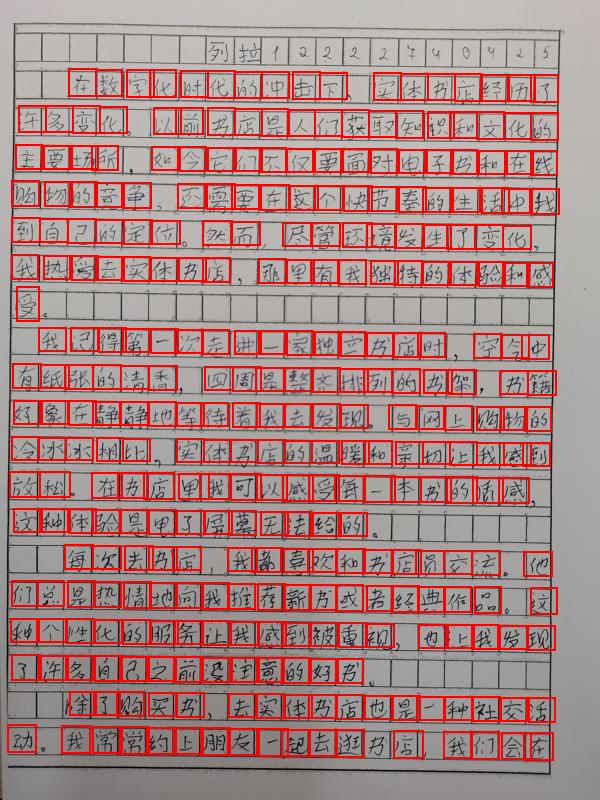 列拉12222740425
在数字化时代的冲击下。实体书店经历了
许多变化。以前书店是人们获取知识和文化的
主要场所，如今它们不仅要面对电子书和在线
购物的竞争，还需要在这个快节奏的生活中找
到自己的定位。然而，尽管环境发生了变化，
我热爱去实体书店，那里有我独特的体验和感
受。
我记得第一次走进一家独立书店时，空令中
有纸张的清香，四周是整齐排列的书架，书籍
好象在静静地等待着我去发现。与网上购物的
冷冰冰相比，实体书店的温暖和亲切让我感到
放松。在书店里我可以感受每一本书的活感，
这种体验是电了屏幕无法给的。
每次去书店，我都喜欢和书店员交流。他
们总是热情地向我推荐新书或者经典作品。这
种个性化的服务让我感到被重视，也让我发现
了许多自己之前没注意的好书。
除了购买书，去实体书店也是一种社交活
动。我常常约上朋友一起去逛书店，我们会在